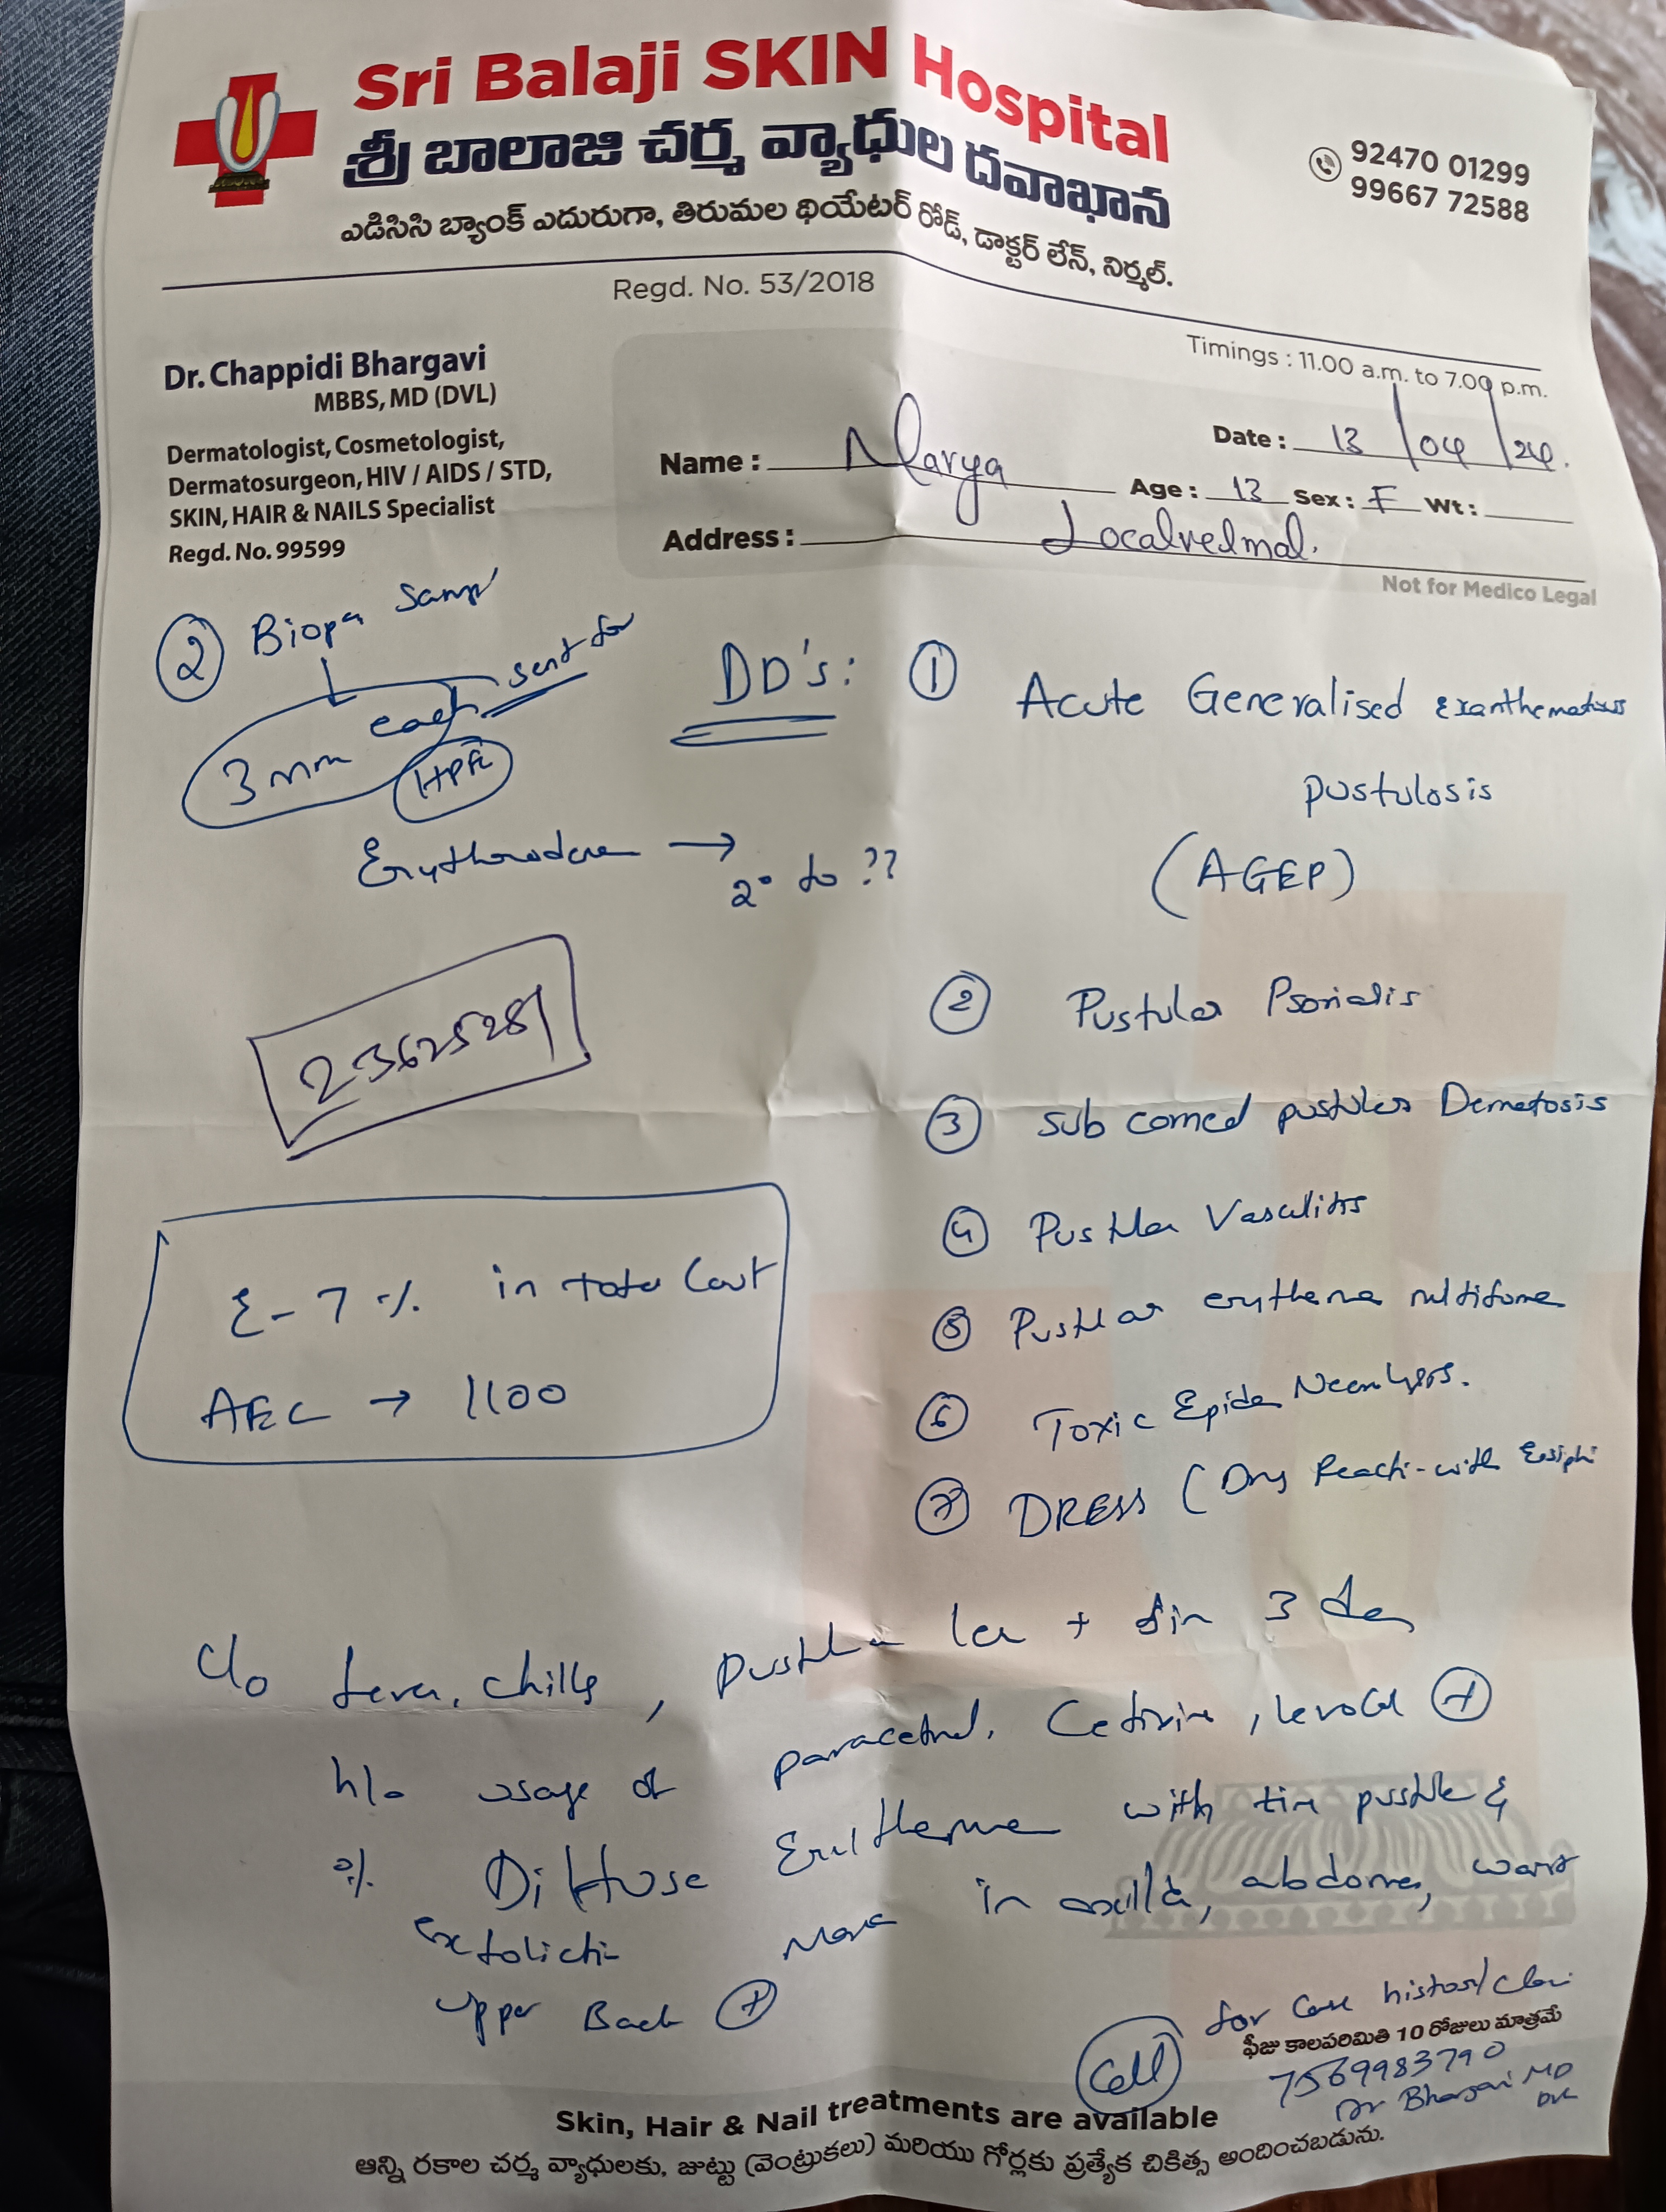 Sri Balaji SKIN Hospital
శ్రీ బాలాజి చర్మ వ్యాధుల దవాఖాన
ఎడిసిసి బ్యాంక్ ఎదురుగా, తిరుమల థియేటర్ రోడ్, డాక్టర్ లేన్, నిర్మల్.
92470 01299
99667 72588
Regd. No. 53/2018
Timings : 11.00 a.m. to 7.00 p.m.
Dr. Chappidi Bhargavi
MBBS, MD (DVL)
Dermatologist, Cosmetologist,
Dermatosurgeon, HIV / AIDS / STD,
SKIN, HAIR & NAILS Specialist
Regd. No. 99599
Date : 13/04/24.
Name : Navya
Age : 13 Sex : F Wt :
Address :
Not for Medico Legal
② Biopsy
3 mm each sent for
HPE
DD's : ① Acute Generalised exanthematous
pustulosis
(AGEP)
Erythroderma → 2° to ??
② Pustular Psoriasis
23625281
③ Sub corneal pustular Dermatosis
④ Pustular Vasculitis
⑤ Pustular erythema multiforme
E - 7 % in total Count
AEC → 1100
⑥ Toxic Epider Necrolysis.
⑦ DRESS (Drug Reacti- with
C/o fever, chills, pustular + sin 3 days
h/o usage of paracetmol, Cetirizine, levocet +
Diffuse Erythema with tiny pustules &
exfoliati- More in axilla, abdomen,
upper Back +
for case history/
Call
7569983790
Dr Bhargavi MD
DVL
ఫీజు కాలపరిమితి 10 రోజులు మాత్రమే
Skin, Hair & Nail treatments are available
అన్ని రకాల చర్మ వ్యాధులకు, జుట్టు (వెంట్రుకలు) మరియు గోర్లకు ప్రత్యేక చికిత్స అందించబడును.